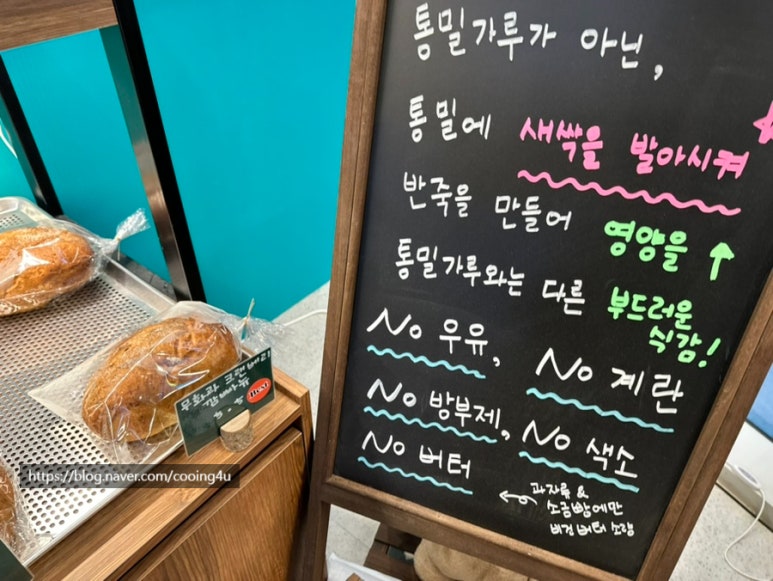 통밀가루가 아닌,
통밀에 새싹을 발아시켜
반죽을 만들어 영양을 ↑
통밀가루와는 다른 부드러운
식감!
No 우유, No 계란
No 방부제, No 색소
No 버터
← 과자류 &
소금빵에만
비건버터 소량
무화과 크랜베리
Best
https://blog.naver.com/cooing4u